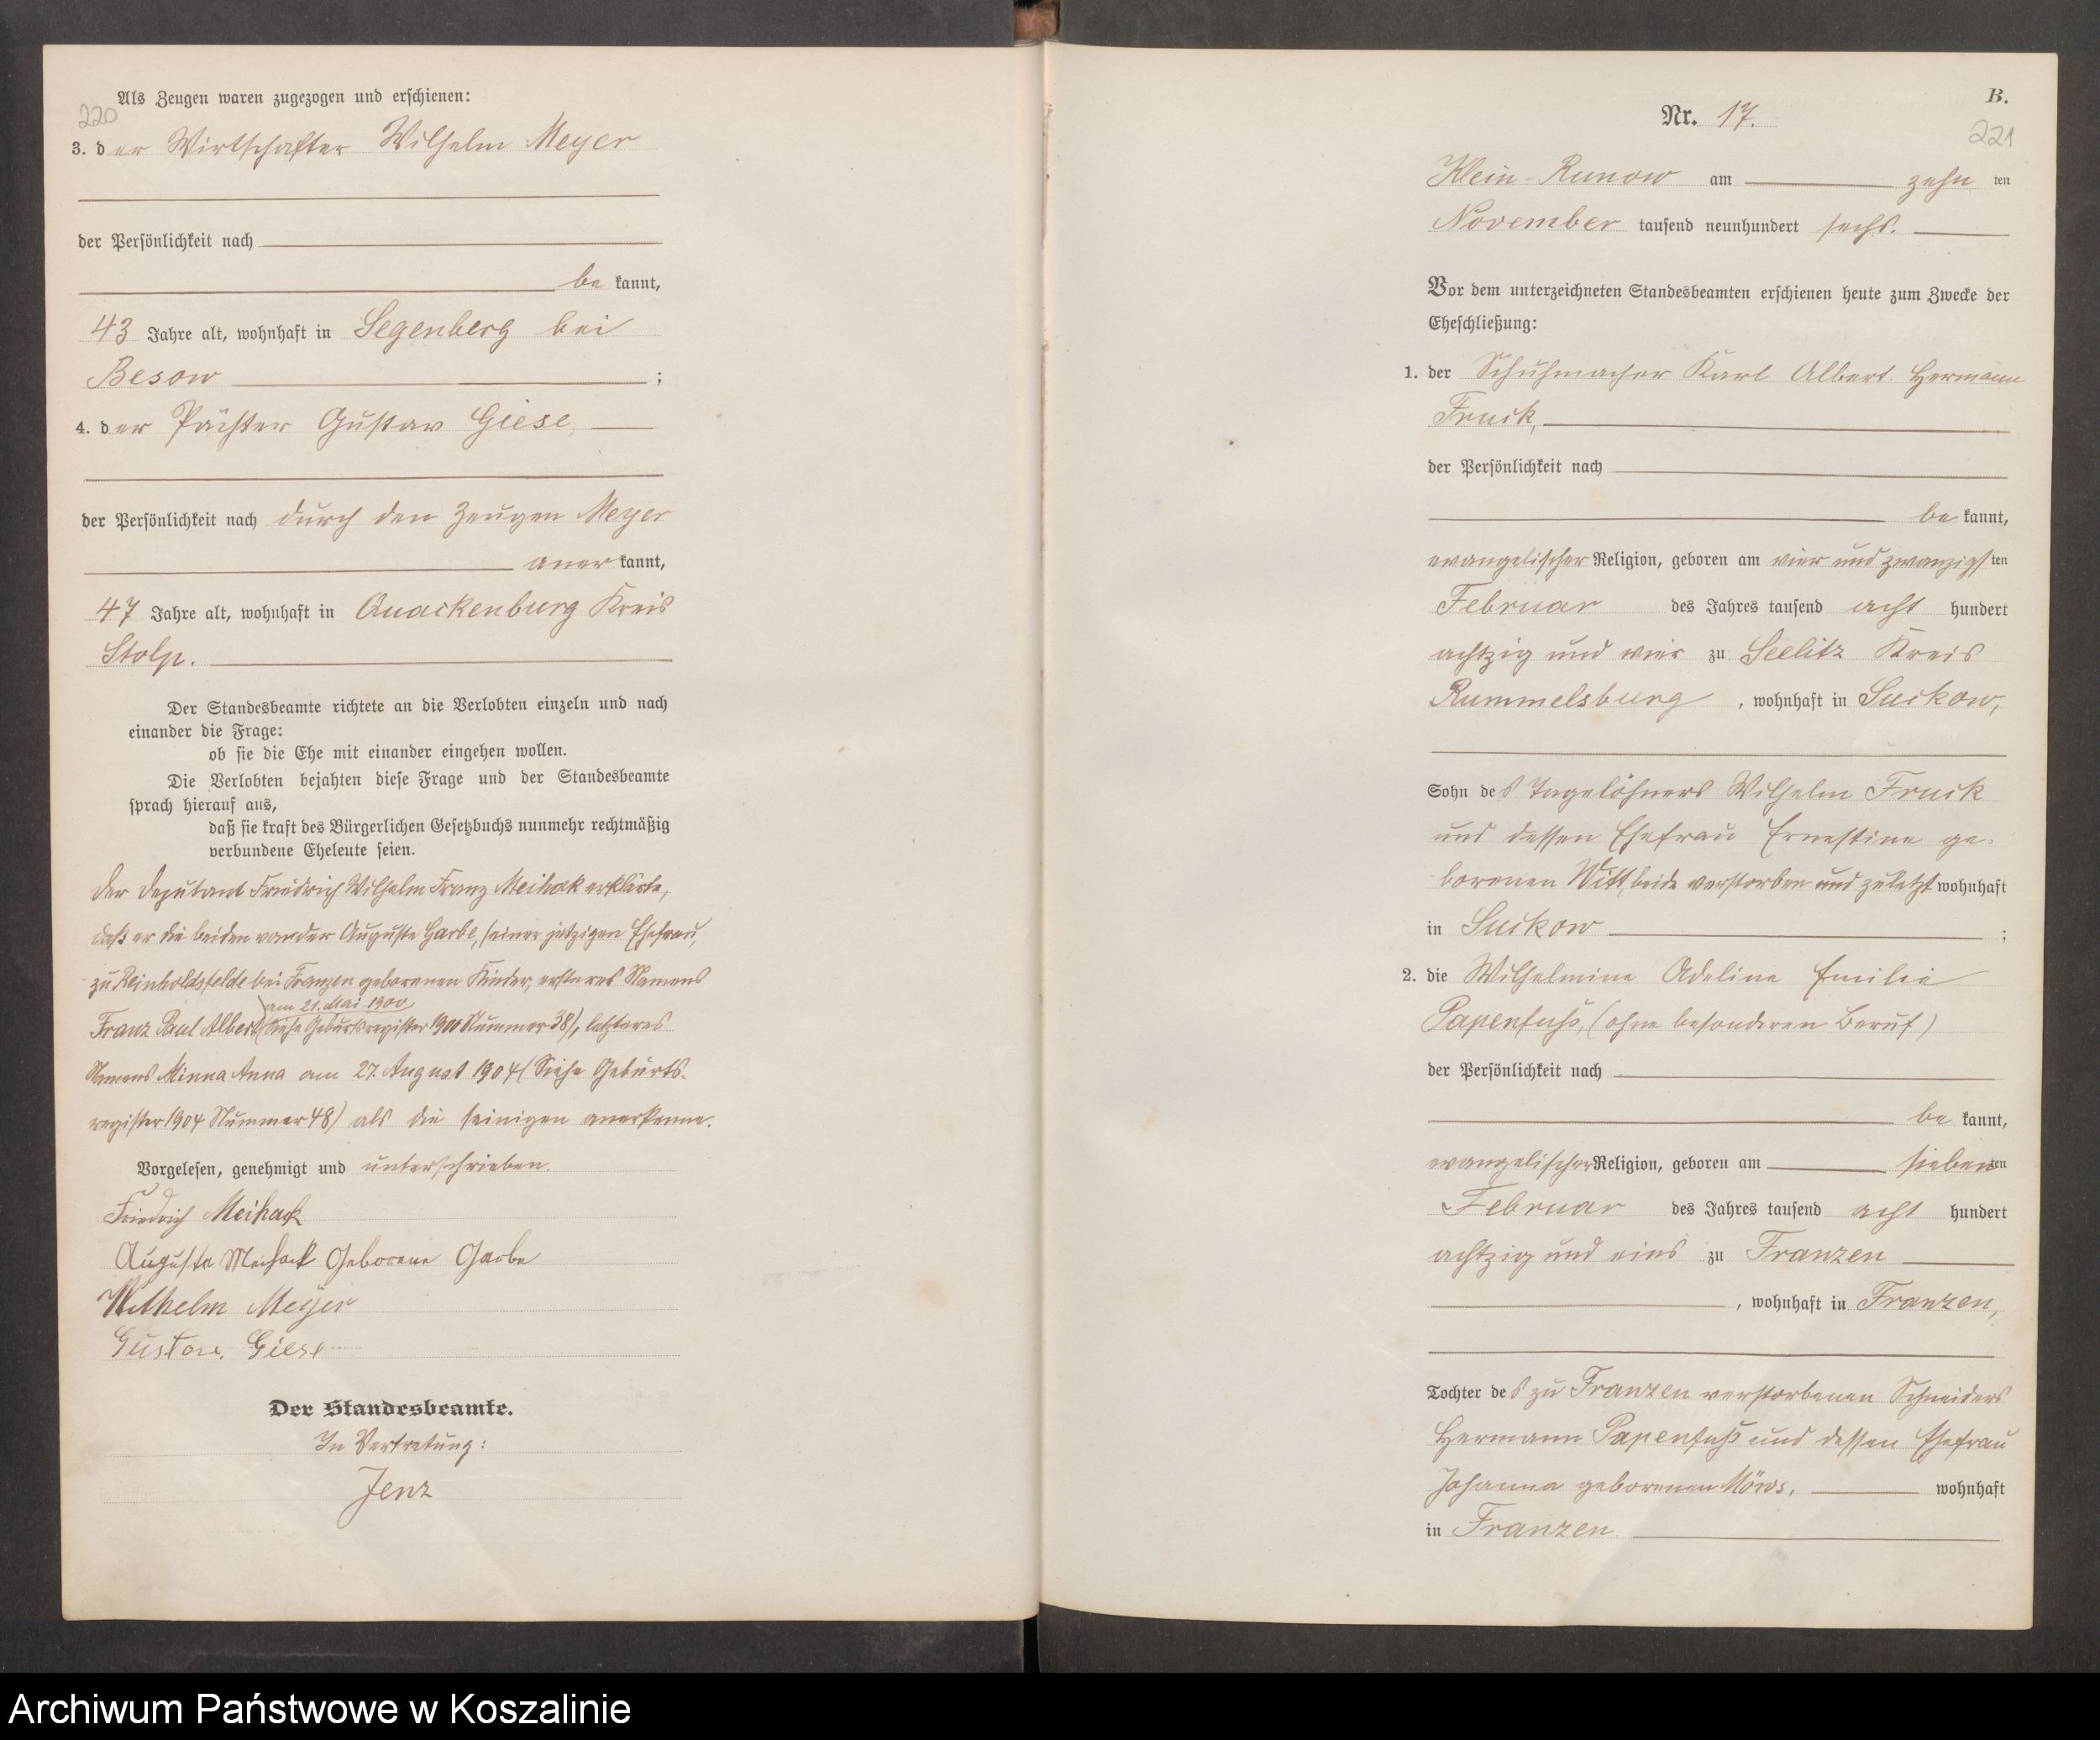 Als Zeugen waren zugezogen und erschienen:
220
3. der Wirtschafter Wilhelm Meyer
der Persönlichkeit nach
be kannt,
43 Jahre alt, wohnhaft in Segenberg bei
Besow ;
4. der Pächter Gustav Giese,
der Persönlichkeit nach durch den Zeugen Meyer
aner kannt,
47 Jahre alt, wohnhaft in Quackenburg Kreis
Stolp.
Der Standesbeamte richtete an die Verlobten einzeln und nach
einander die Frage:
ob sie die Ehe mit einander eingehen wollen.
Die Verlobten bejahten diese Frage und der Standesbeamte
sprach hierauf aus,
daß sie kraft des Bürgerlichen Gesetzbuchs nunmehr rechtmäßig
verbundene Eheleute seien.
Der Deputant Friedrich Wilhelm Franz Meihack erklärte,
daß er die beiden von der Auguste Garbe, seiner jetzigen Ehefrau,
zu Reinholdsfelde bei Franzen geborenen Kinder, ersteres Namens
am 21. Mai 1900
Franz Paul Albert (Siehe Geburtsregister 1900 Nummer 38), letzteres
Namens Minna Anna am 27. August 1904 (Siehe Geburts-
register 1904 Nummer 48) als die seinigen anerkenne.
Vorgelesen, genehmigt und unterschrieben.
Friedrich Meihack
Auguste Meihack Geborene Garbe
Wilhelm Meyer
Gustav. Giese
Der Standesbeamte.
In Vertretung:
Jenz
B.
Nr. 17.
221
Klein-Runow am zehn ten
November tausend neunhundert sechs.
Vor dem unterzeichneten Standesbeamten erschienen heute zum Zwecke der
Eheschließung:
1. der Schuhmacher Karl Albert Hermann
Fruck,
der Persönlichkeit nach
be kannt,
evangelischer Religion, geboren am vier und zwanzigsten
Februar des Jahres tausend acht hundert
achtzig und vier zu Seelitz Kreis
Rummelsburg, wohnhaft in Suckow,
Sohn des Tagelöhners Wilhelm Fruck
und dessen Ehefrau Ernestine ge-
borenen Witt, beide verstorben und zuletzt wohnhaft
in Suckow ;
2. die Wilhelmine Adeline Emilie
Papenfuß, (ohne besonderen Beruf)
der Persönlichkeit nach
be kannt,
evangelischer Religion, geboren am siebenten
Februar des Jahres tausend acht hundert
achtzig und eins zu Franzen
, wohnhaft in Franzen,
Tochter des zu Franzen verstorbenen Schneiders
Hermann Papenfuß und dessen Ehefrau
Johanna geborenen Möws, wohnhaft
in Franzen.
Archiwum Państwowe w Koszalinie